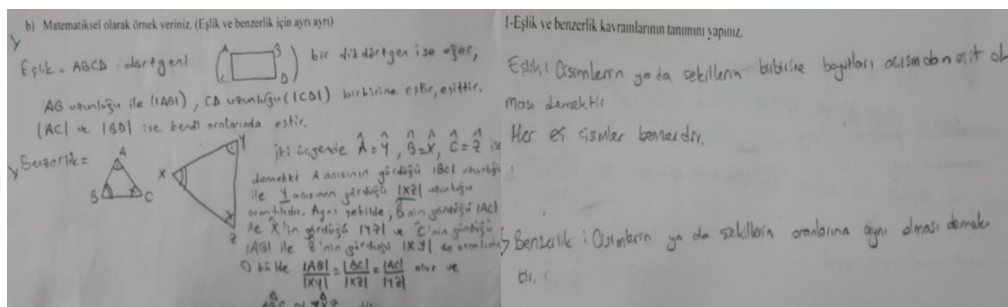 b) Matematiksel olarak örnek veriniz. (Eşlik ve benzerlik için ayrı ayrı)
Eşlik = ABCD dörtgeni
A B
C D
bir dikdörtgen ise eğer;
AB uzunluğu ile (|AB|), CD uzunluğu (|CD|) birbirine eştir, eşittir.
|AC| ve |BD| ise kendi aralarında eştir.
Benzerlik =
A
B C
X Y Z
iki üçgende Â=Ŷ, B̂=X̂, Ĉ=Ẑ ise
demekki A açısının gördüğü |BC| uzunluğu
ile Y açısının gördüğü |XZ| uzunluğu
orantılıdır. Aynı şekilde, B̂'nin gördüğü |AC|
ile X̂'in gördüğü |YZ| ve Ĉ'nin gördüğü
|AB| ile Ẑ'nin gördüğü |XY| de orantılıdır
O hâlde |AB|/|XY| = |BC|/|XZ| = |AC|/|YZ| olur ve
1-Eşlik ve benzerlik kavramlarının tanımını yapınız.
Eşlik: Cisimlerin ya da şekillerin birbirine boyutları açısından eşit ol
ması demektir
Her eş cisimler benzerdir.
Benzerlik : Cisimlerin ya da şekillerin oranlarına aynı olması demek
tir.